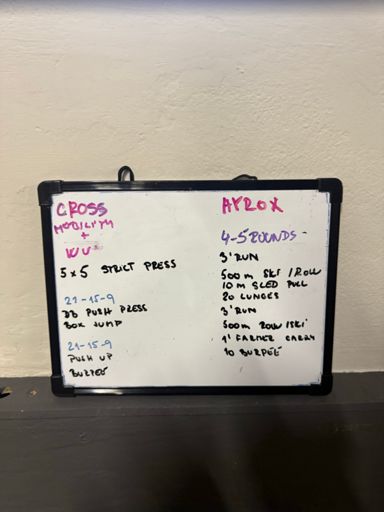 CROSS
MOBILITY
+
WU
5x5 STRICT PRESS
21-15-9
DB PUSH PRESS
BOX JUMP
21-15-9
PUSH UP
BURPEE
AYROX
4-5 ROUNDS
3' RUN
500m SKI / ROW
10m SLED PULL
20 LUNGES
3' RUN
500m ROW/SKI
1' FARMER CARRY
10 BURPEE